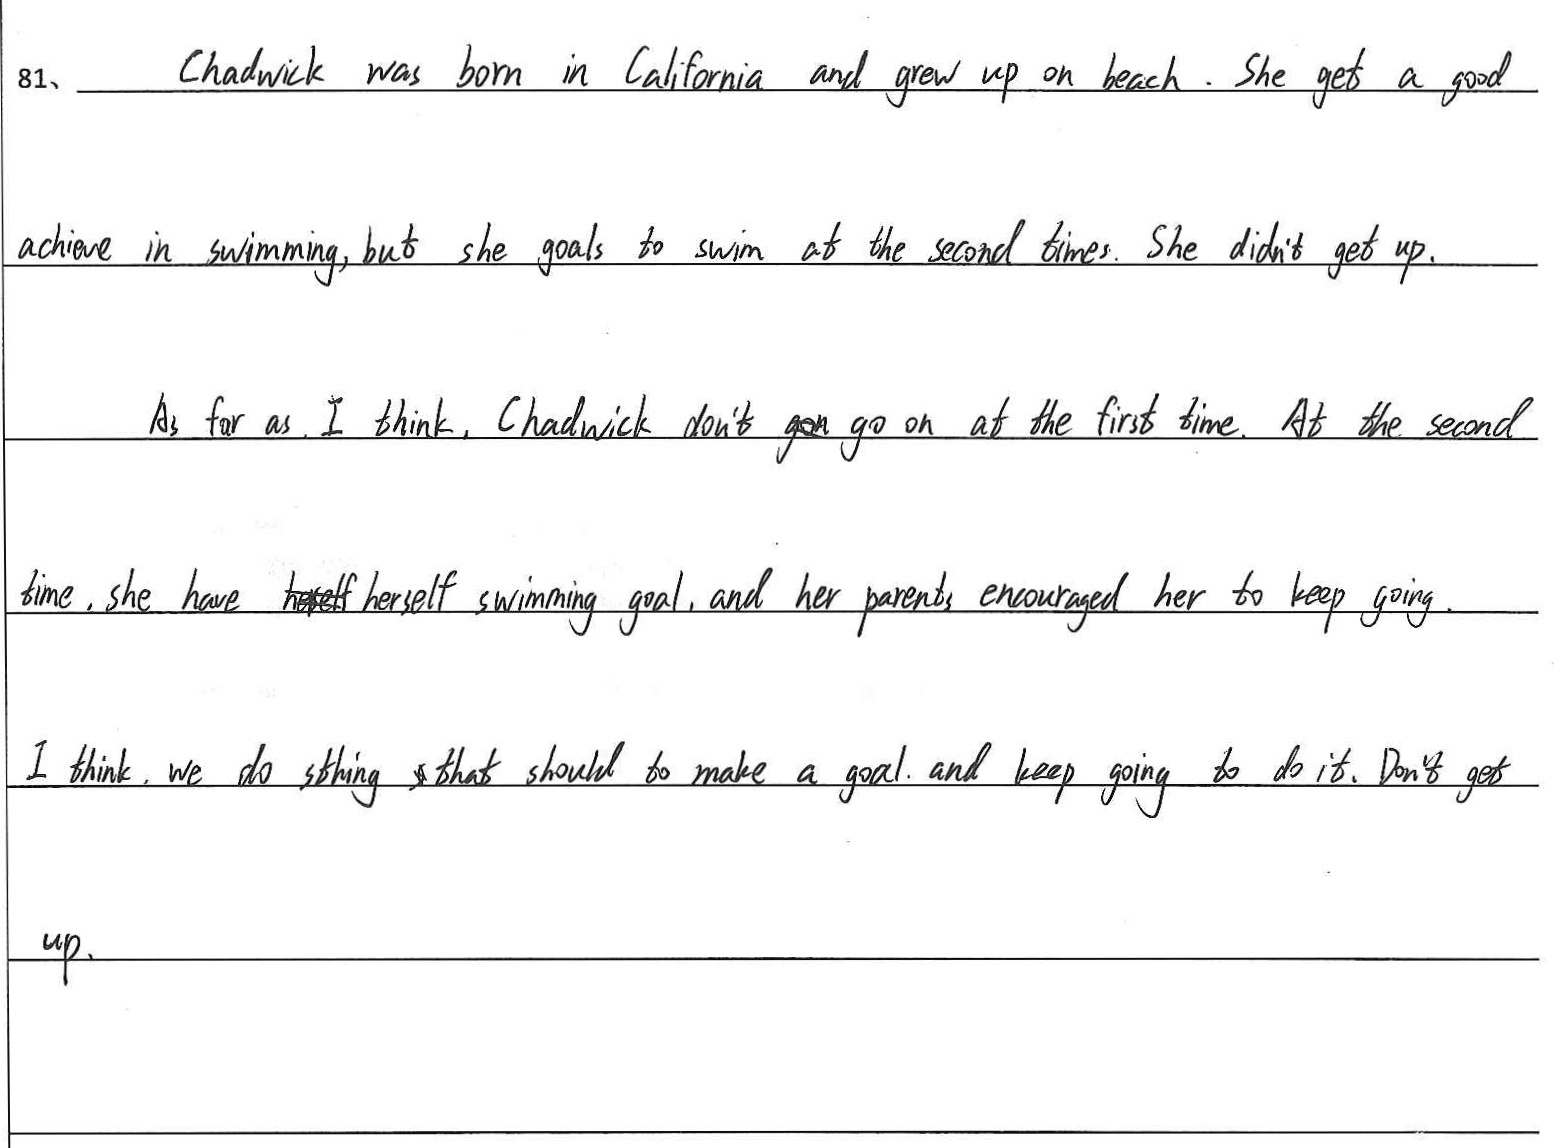 81、 Chadwick was born in California and grew up on beach. She get a good
achieve in swimming, but she goals to swim at the second times. She didn't get up.
As far as I think, Chadwick don't go on at the first time. At the second
time, she have herself swimming goal, and her parents encouraged her to keep going.
I think, we do sthing that should to make a goal. and keep going to do it. Don't get
up.